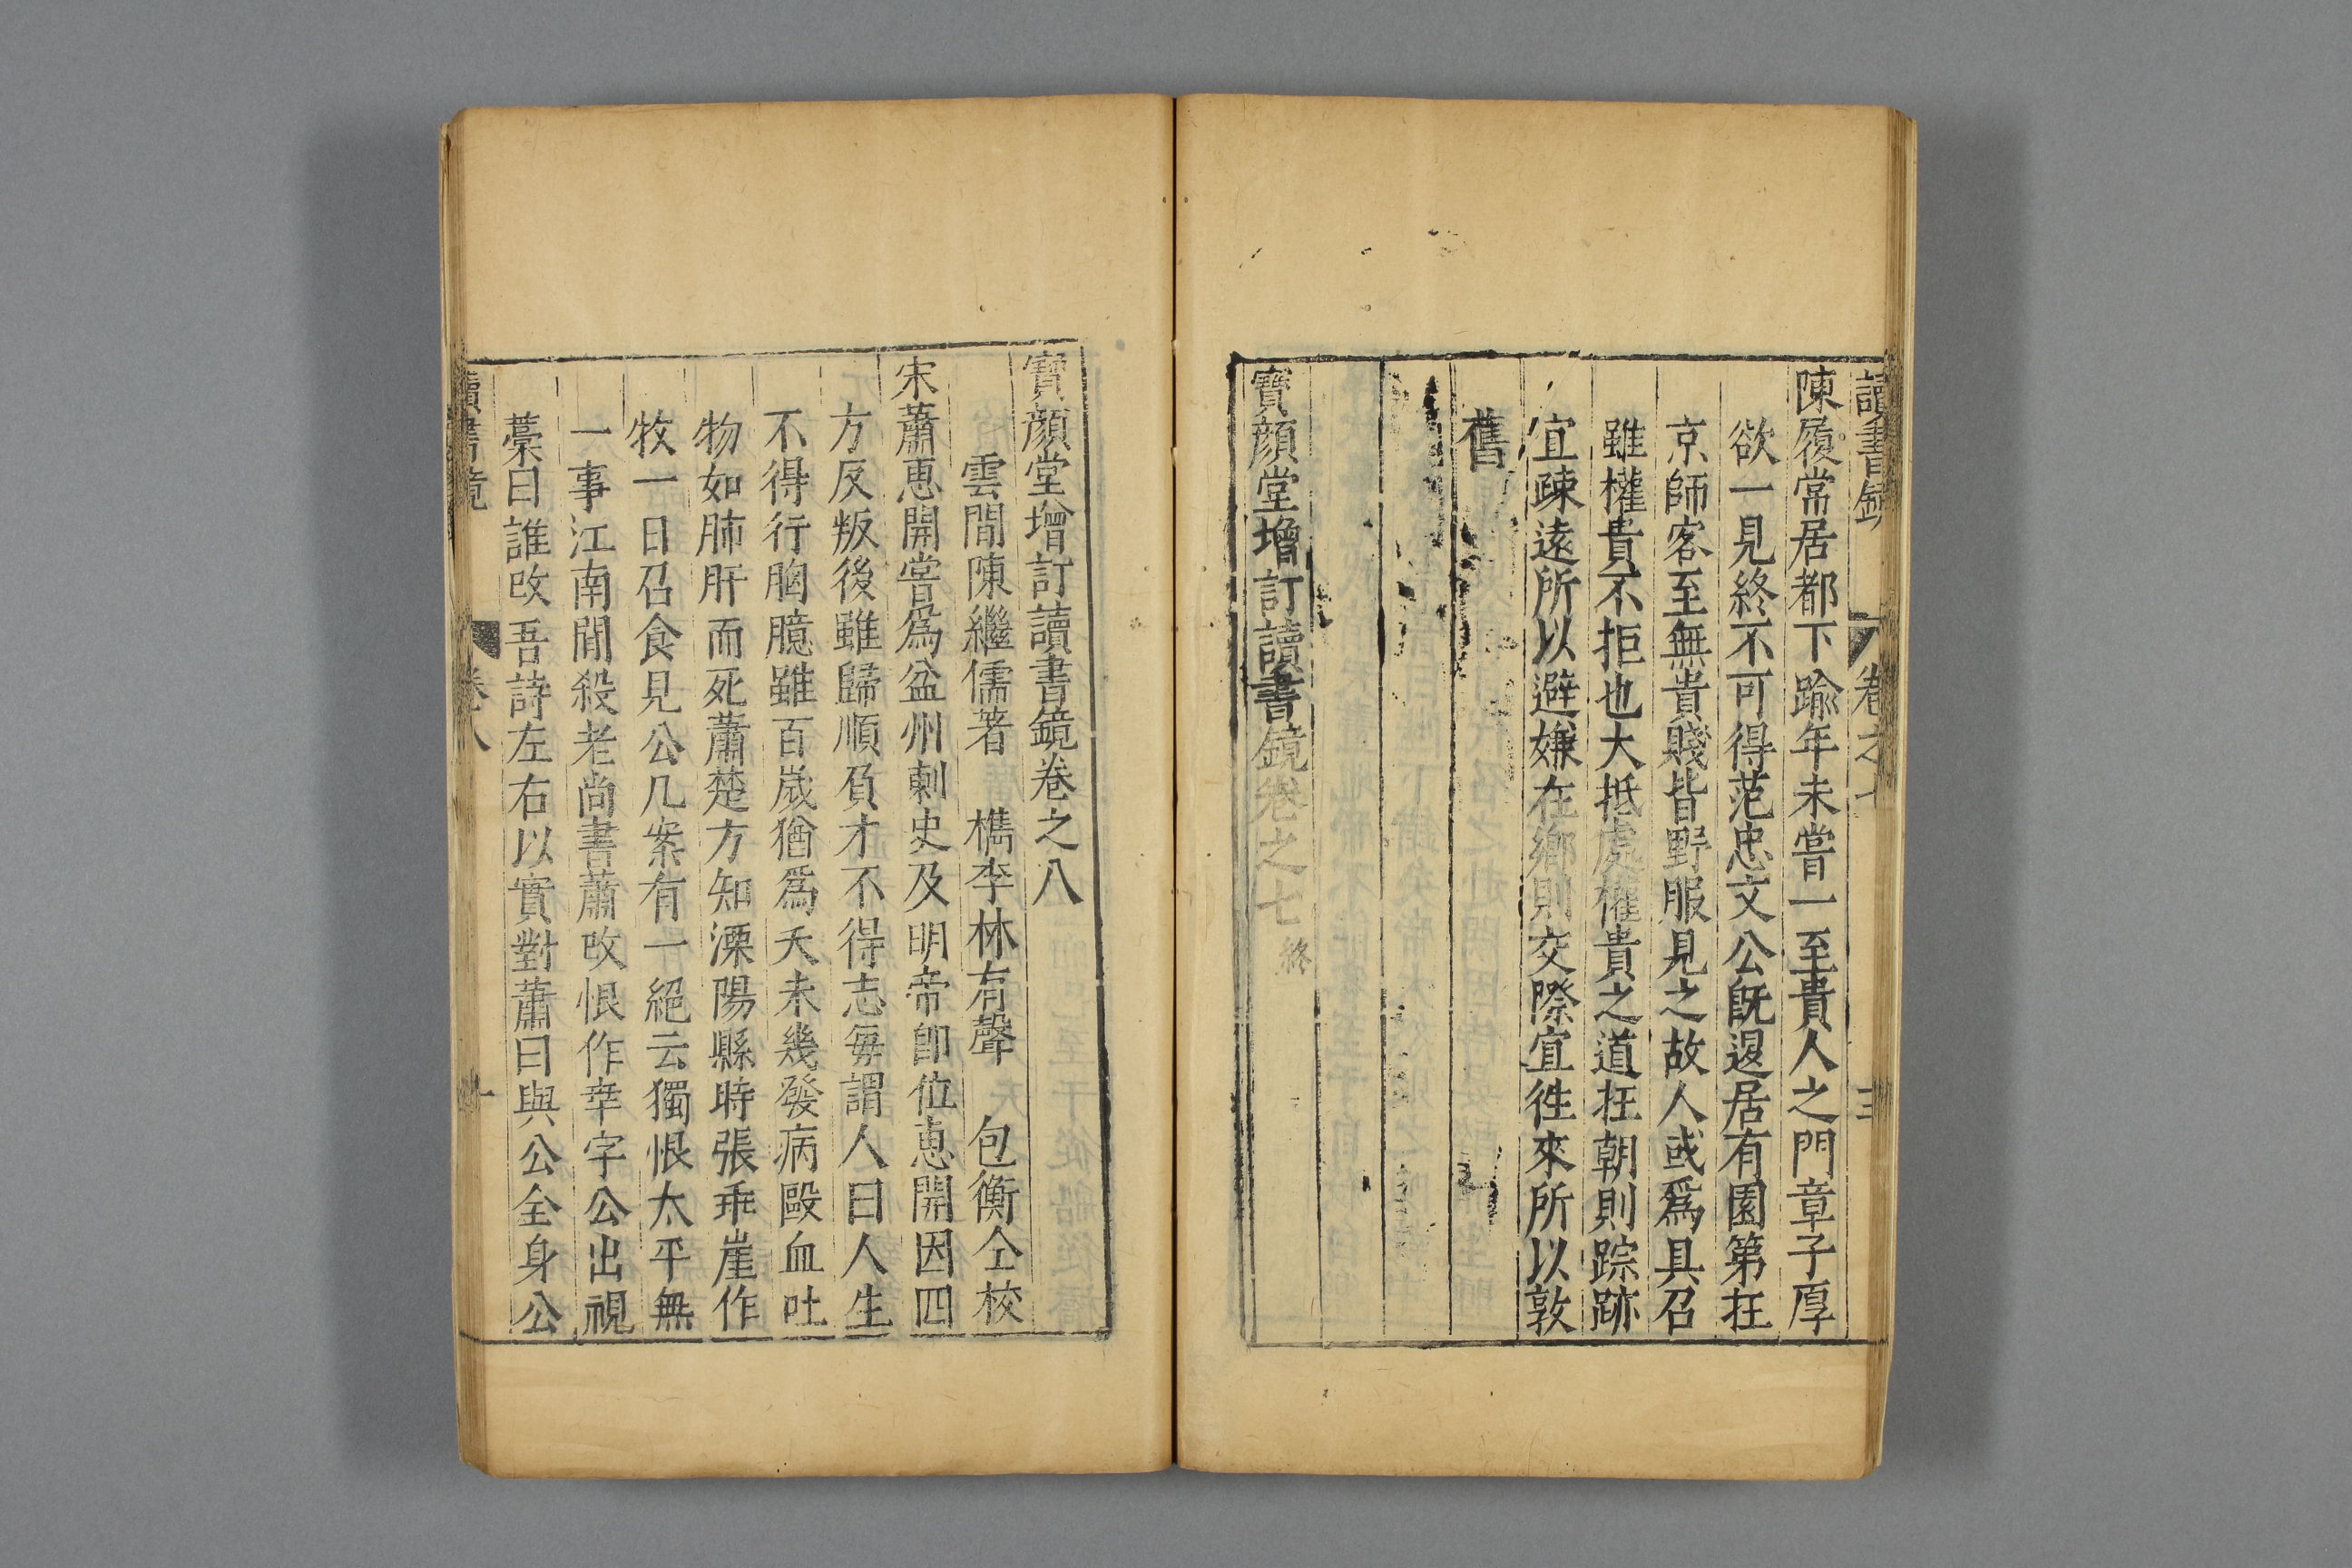 讀書鏡 卷之七 十三
陳履常居都下踰年未嘗一至貴人之門章子厚
欲一見終不可得范忠文公旣退居有園第在
京師客至無貴賤皆野服見之故人或爲具召
雖權貴不拒也大抵處權貴之道在朝則踪跡
宜疎遠所以避嫌在鄉則交際宜徃來所以敦
舊
寶顏堂增訂讀書鏡卷之七 終
寶顏堂增訂讀書鏡卷之八
雲間陳繼儒著 檇李林有聲 包衡仝校
宋蕭惠開嘗爲益州刺史及明帝卽位惠開因四
方反叛後雖歸順負才不得志每謂人曰人生
不得行胸臆雖百歲猶爲夭未幾發病毆血吐
物如肺肝而死蕭楚方知溧陽縣時張乖崖作
牧一日召食見公几案有一絕云獨恨太平無
一事江南閒殺老尚書蕭改恨作幸字公出視
藁曰誰改吾詩左右以實對蕭曰與公全身公
讀書鏡 卷八 一